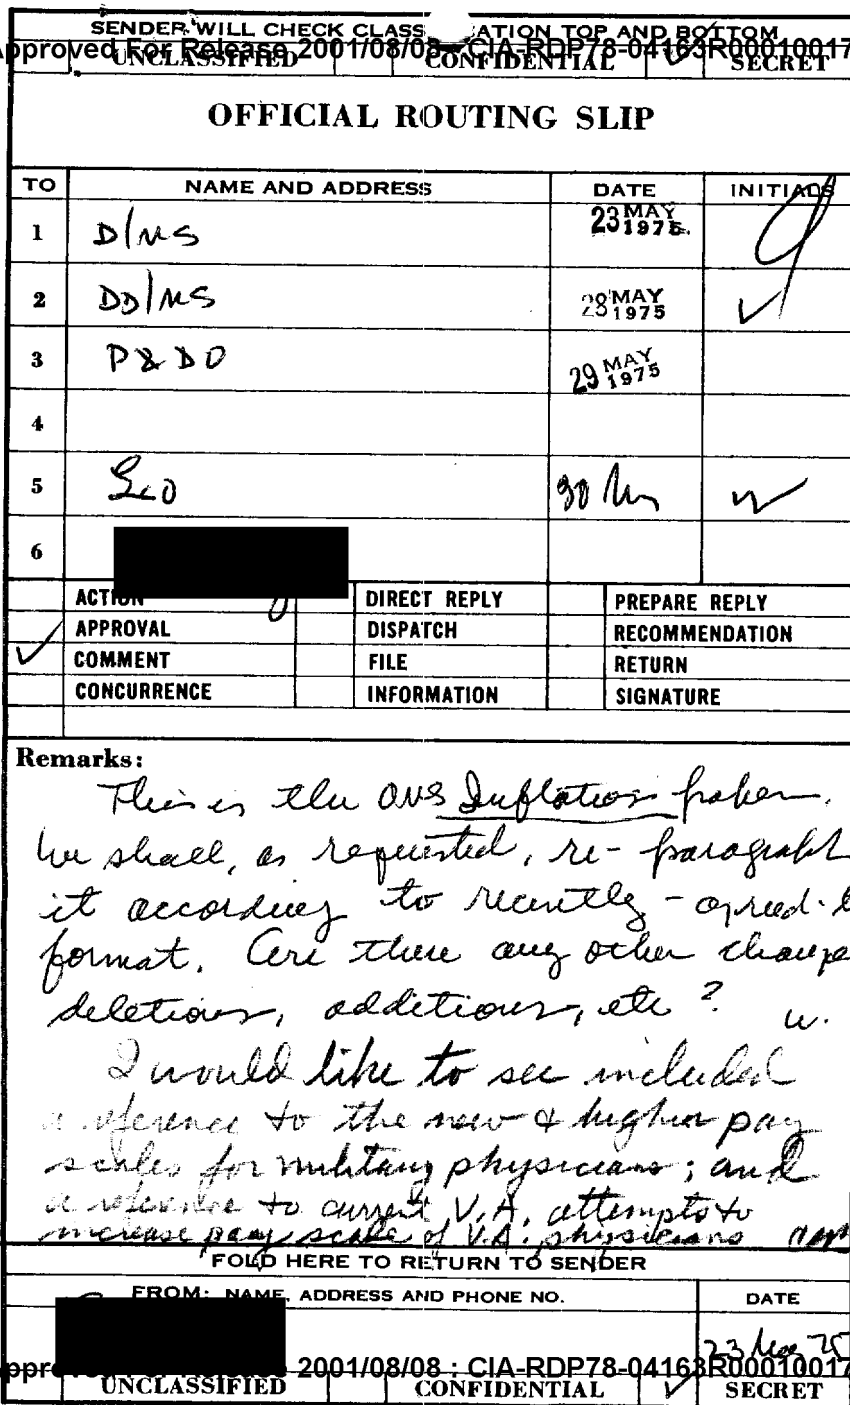 SENDER WILL CHECK CLASS ATION TOP AND BOTTOM
pproved For Release 2001/08/08 : CIA-RDP78-04163R00010017
UNCLASSIFIED CONFIDENTIAL ✓ SECRET
OFFICIAL ROUTING SLIP
TO NAME AND ADDRESS DATE INITIALS
1 D/MS 23 MAY 1975
2 DD/MS 28 MAY 1975 ✓
3 P&DO 29 MAY 1975
4
5
6
ACTION DIRECT REPLY PREPARE REPLY
APPROVAL DISPATCH RECOMMENDATION
✓ COMMENT FILE RETURN
CONCURRENCE INFORMATION SIGNATURE
Remarks:
This is the OMS Inflation paper.
We shall, as requested, re-paragraph
it according to recently-agreed-
format. Are there any other change
deletions, additions, etc? w.
I would like to see included
a reference to the new & higher pay
scales for military physicians; and
a reference to current V.A. attempts to
increase pay scale of V.A. physicians
FOLD HERE TO RETURN TO SENDER
FROM: NAME, ADDRESS AND PHONE NO. DATE
23 May 75
ppr 2001/08/08 : CIA-RDP78-04163R00010017
UNCLASSIFIED CONFIDENTIAL ✓ SECRET